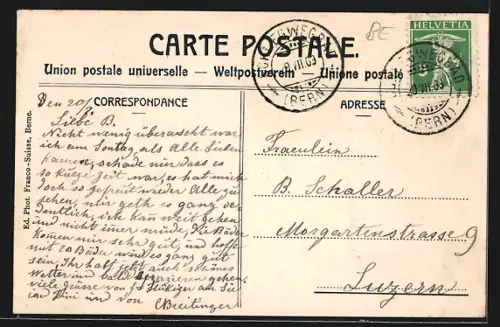 CARTE POSTALE.
Union postale universelle — Weltpostverein — Unione postale
HELVETIA
5
BE
(BERN)
(BERN)
CORRESPONDANCE
ADRESSE
Ed. Phot. Franco-Suisse, Berne.
Den 20/
Liebe B.
Nicht wenig überrascht war
ich am Sontag, als Alle Lieben
kamen, schade nur dass es
so kurze Zeit war, es hat mich
doch so gefreut wieder Alle zu
sehen, mir geth es ganz or-
dentlich, ich kann weit gehen
und nicht immer müde, die Bäder
kommen mir sehr gut, und hoffe
mit 20 Bäder wird es ganz gut
sein, Ihr habt jetzt auch schönes
Wetter und spazieren gehen
viele grüsse von
und von
Breitinger
Fraeulein
B. Schaller
Morgartenstrasse 9
Luzern